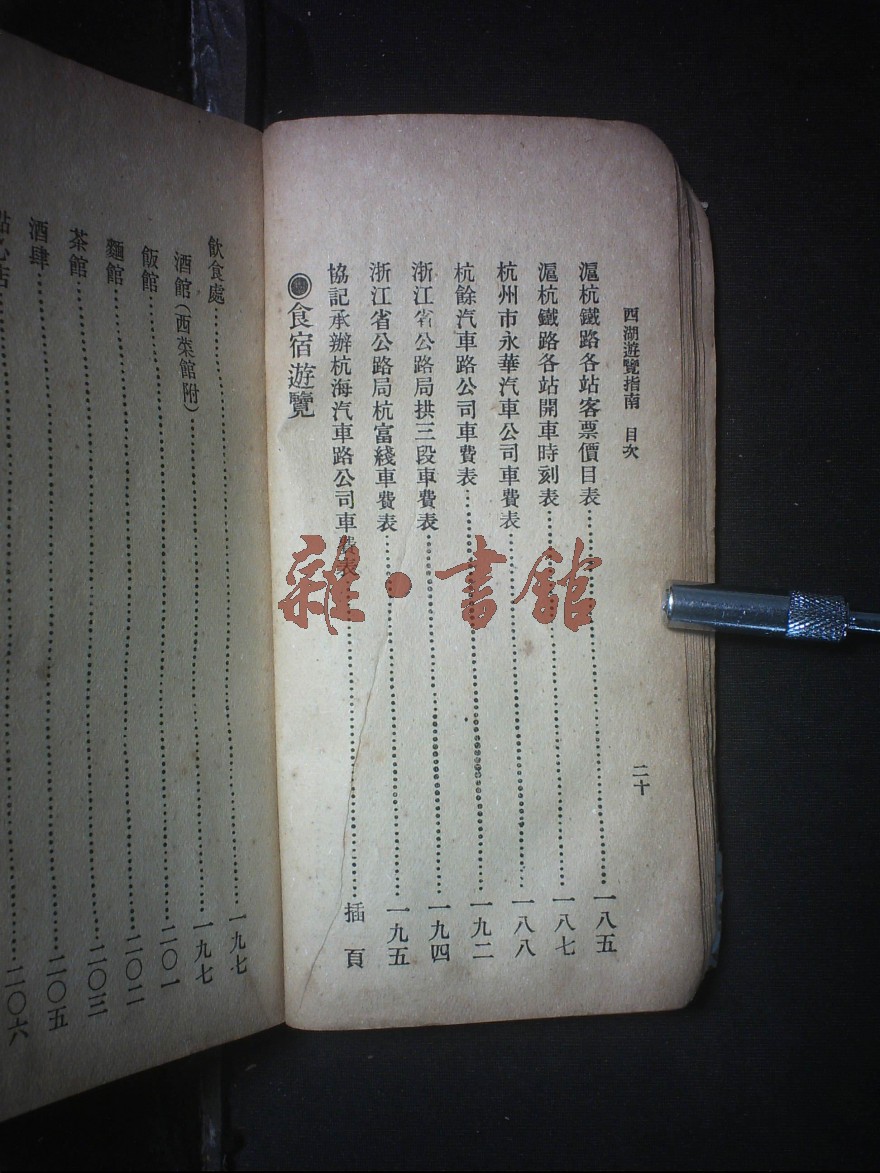 西湖遊覽指南　目次
二十
滬杭鐵路各站客票價目表……一八五
滬杭鐵路各站開車時刻表……一八七
杭州市永華汽車公司車費表……一八八
杭餘汽車路公司車費表……一九二
浙江省公路局拱三段車費表……一九四
浙江省公路局杭富綫車費表……一九五
協記承辦杭海汽車路公司車費表……插頁
食宿遊覽
飲食處……一九七
酒館(西菜館附)……一九七
飯館……二〇一
麵館……二〇二
茶館……二〇三
酒肆……二〇五
點心店……二〇六
雜·書館